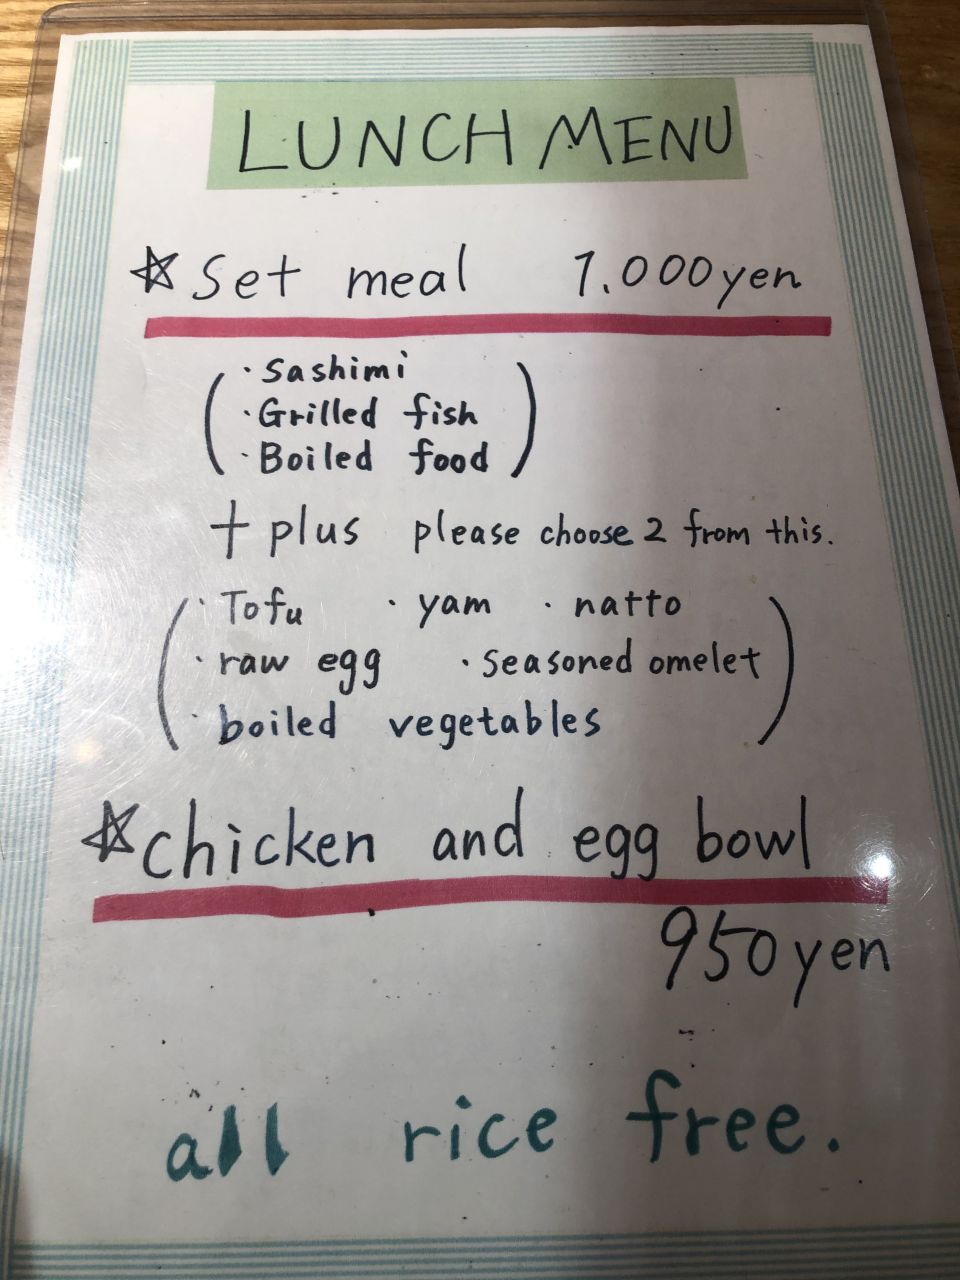 LUNCH MENU
☆ Set meal 1.000yen
・Sashimi
・Grilled fish
・Boiled food
+ plus please choose 2 from this.
・Tofu ・yam ・natto
・raw egg ・seasoned omelet
・boiled vegetables
☆ chicken and egg bowl
950yen
all rice free.